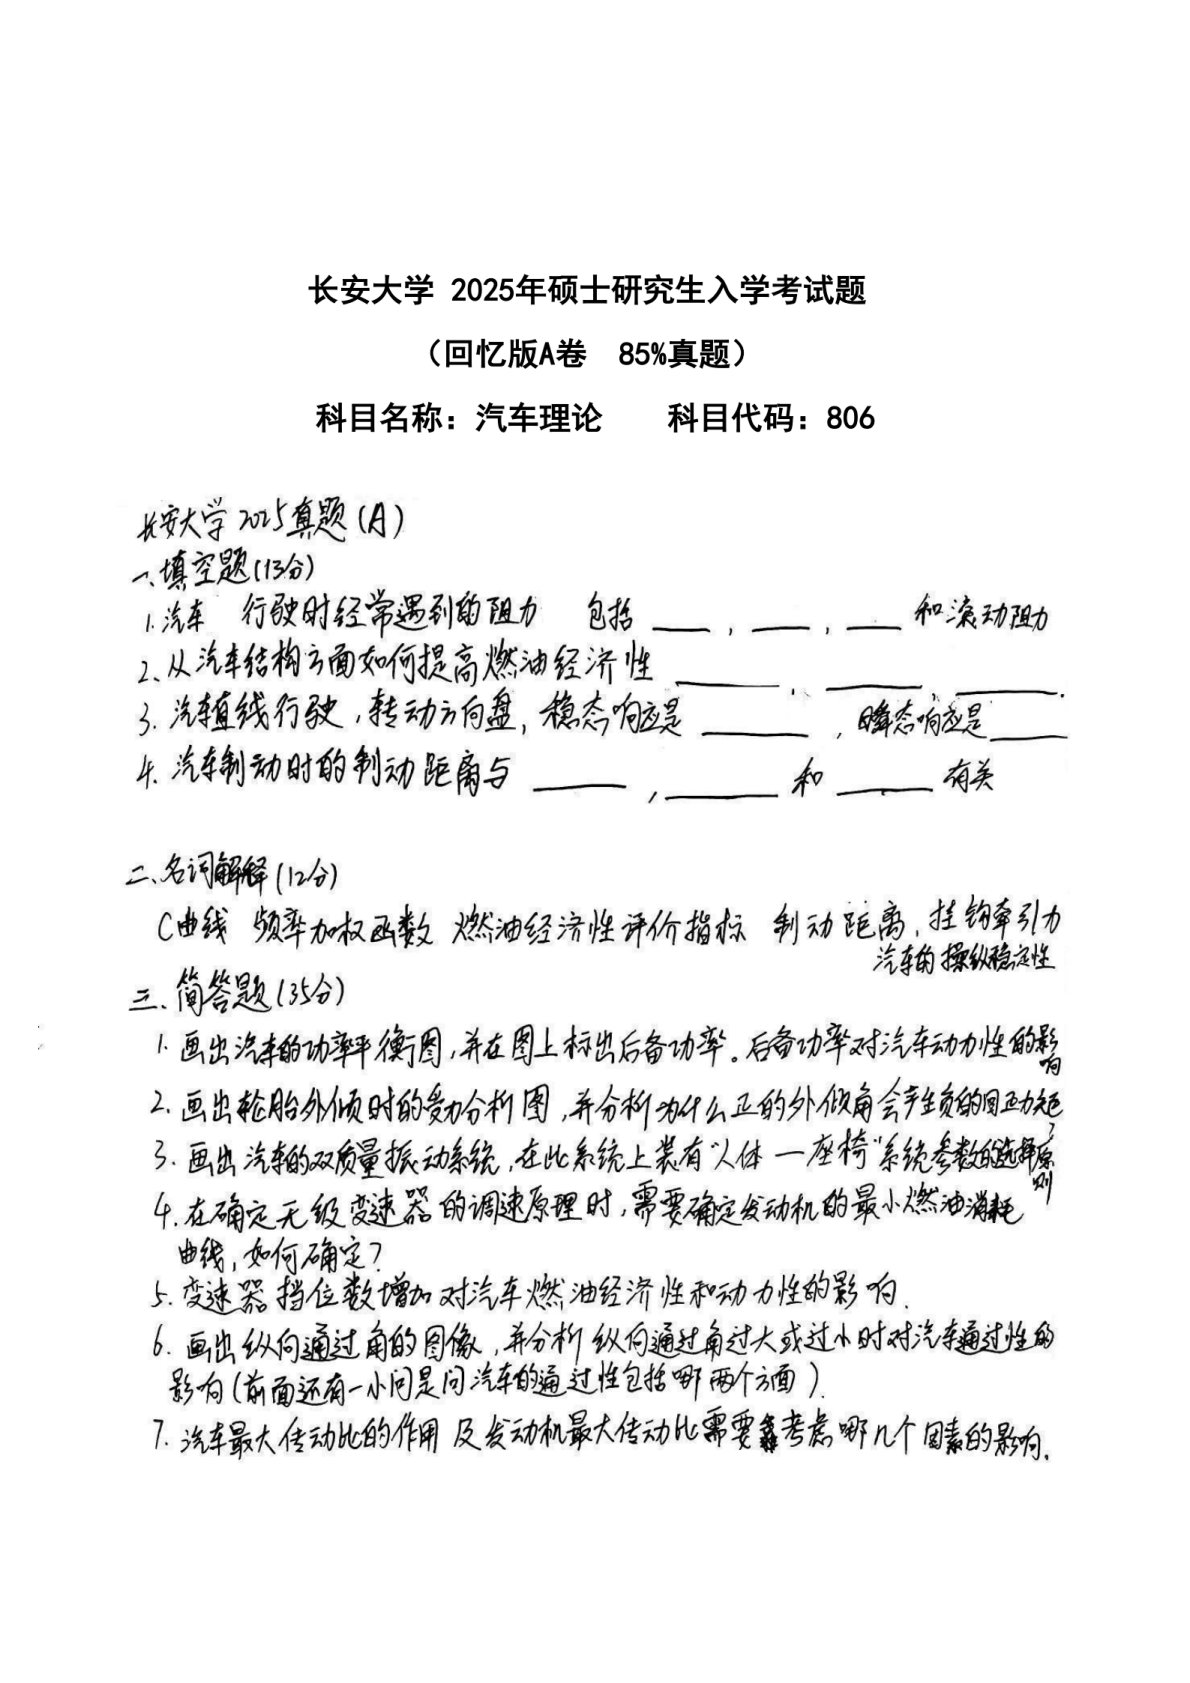 长安大学 2025年硕士研究生入学考试题
（回忆版A卷 85%真题）
科目名称：汽车理论 科目代码：806
长安大学2025真题(A)
一、填空题(13分)
1.汽车 行驶时经常遇到的阻力 包括 ____，____，____ 和滚动阻力
2、从汽车结构方面如何提高燃油经济性 ____、____，____.
3. 汽车直线行驶，转动方向盘，稳态响应是 ____，瞬态响应是____
4. 汽车制动时的制动距离与 ____，____ 和 ____ 有关
二、名词解释(12分)
C曲线 频率加权函数 燃油经济性评价指标 制动距离，挂钩牵引力
汽车的操纵稳定性
三、简答题(35分)
1. 画出汽车的功率平衡图，并在图上标出后备功率。后备功率对汽车动力性的影响
2. 画出轮胎外倾时的受力分析图，并分析为什么正的外倾角会产生负的回正力矩?
3. 画出汽车的双质量振动系统，在此系统上装有“人体一座椅”系统参数的选择原则
4. 在确定无级变速器的调速原理时，需要确定发动机的最小燃油消耗
曲线，如何确定?
5. 变速器挡位数增加对汽车燃油经济性和动力性的影响.
6. 画出纵向通过角的图像，并分析纵向通过角过大或过小时对汽车通过性的
影响(前面还有一小问是问汽车的通过性包括哪两个方面).
7. 汽车最大传动比的作用及发动机最大传动比需要考虑哪几个因素的影响.